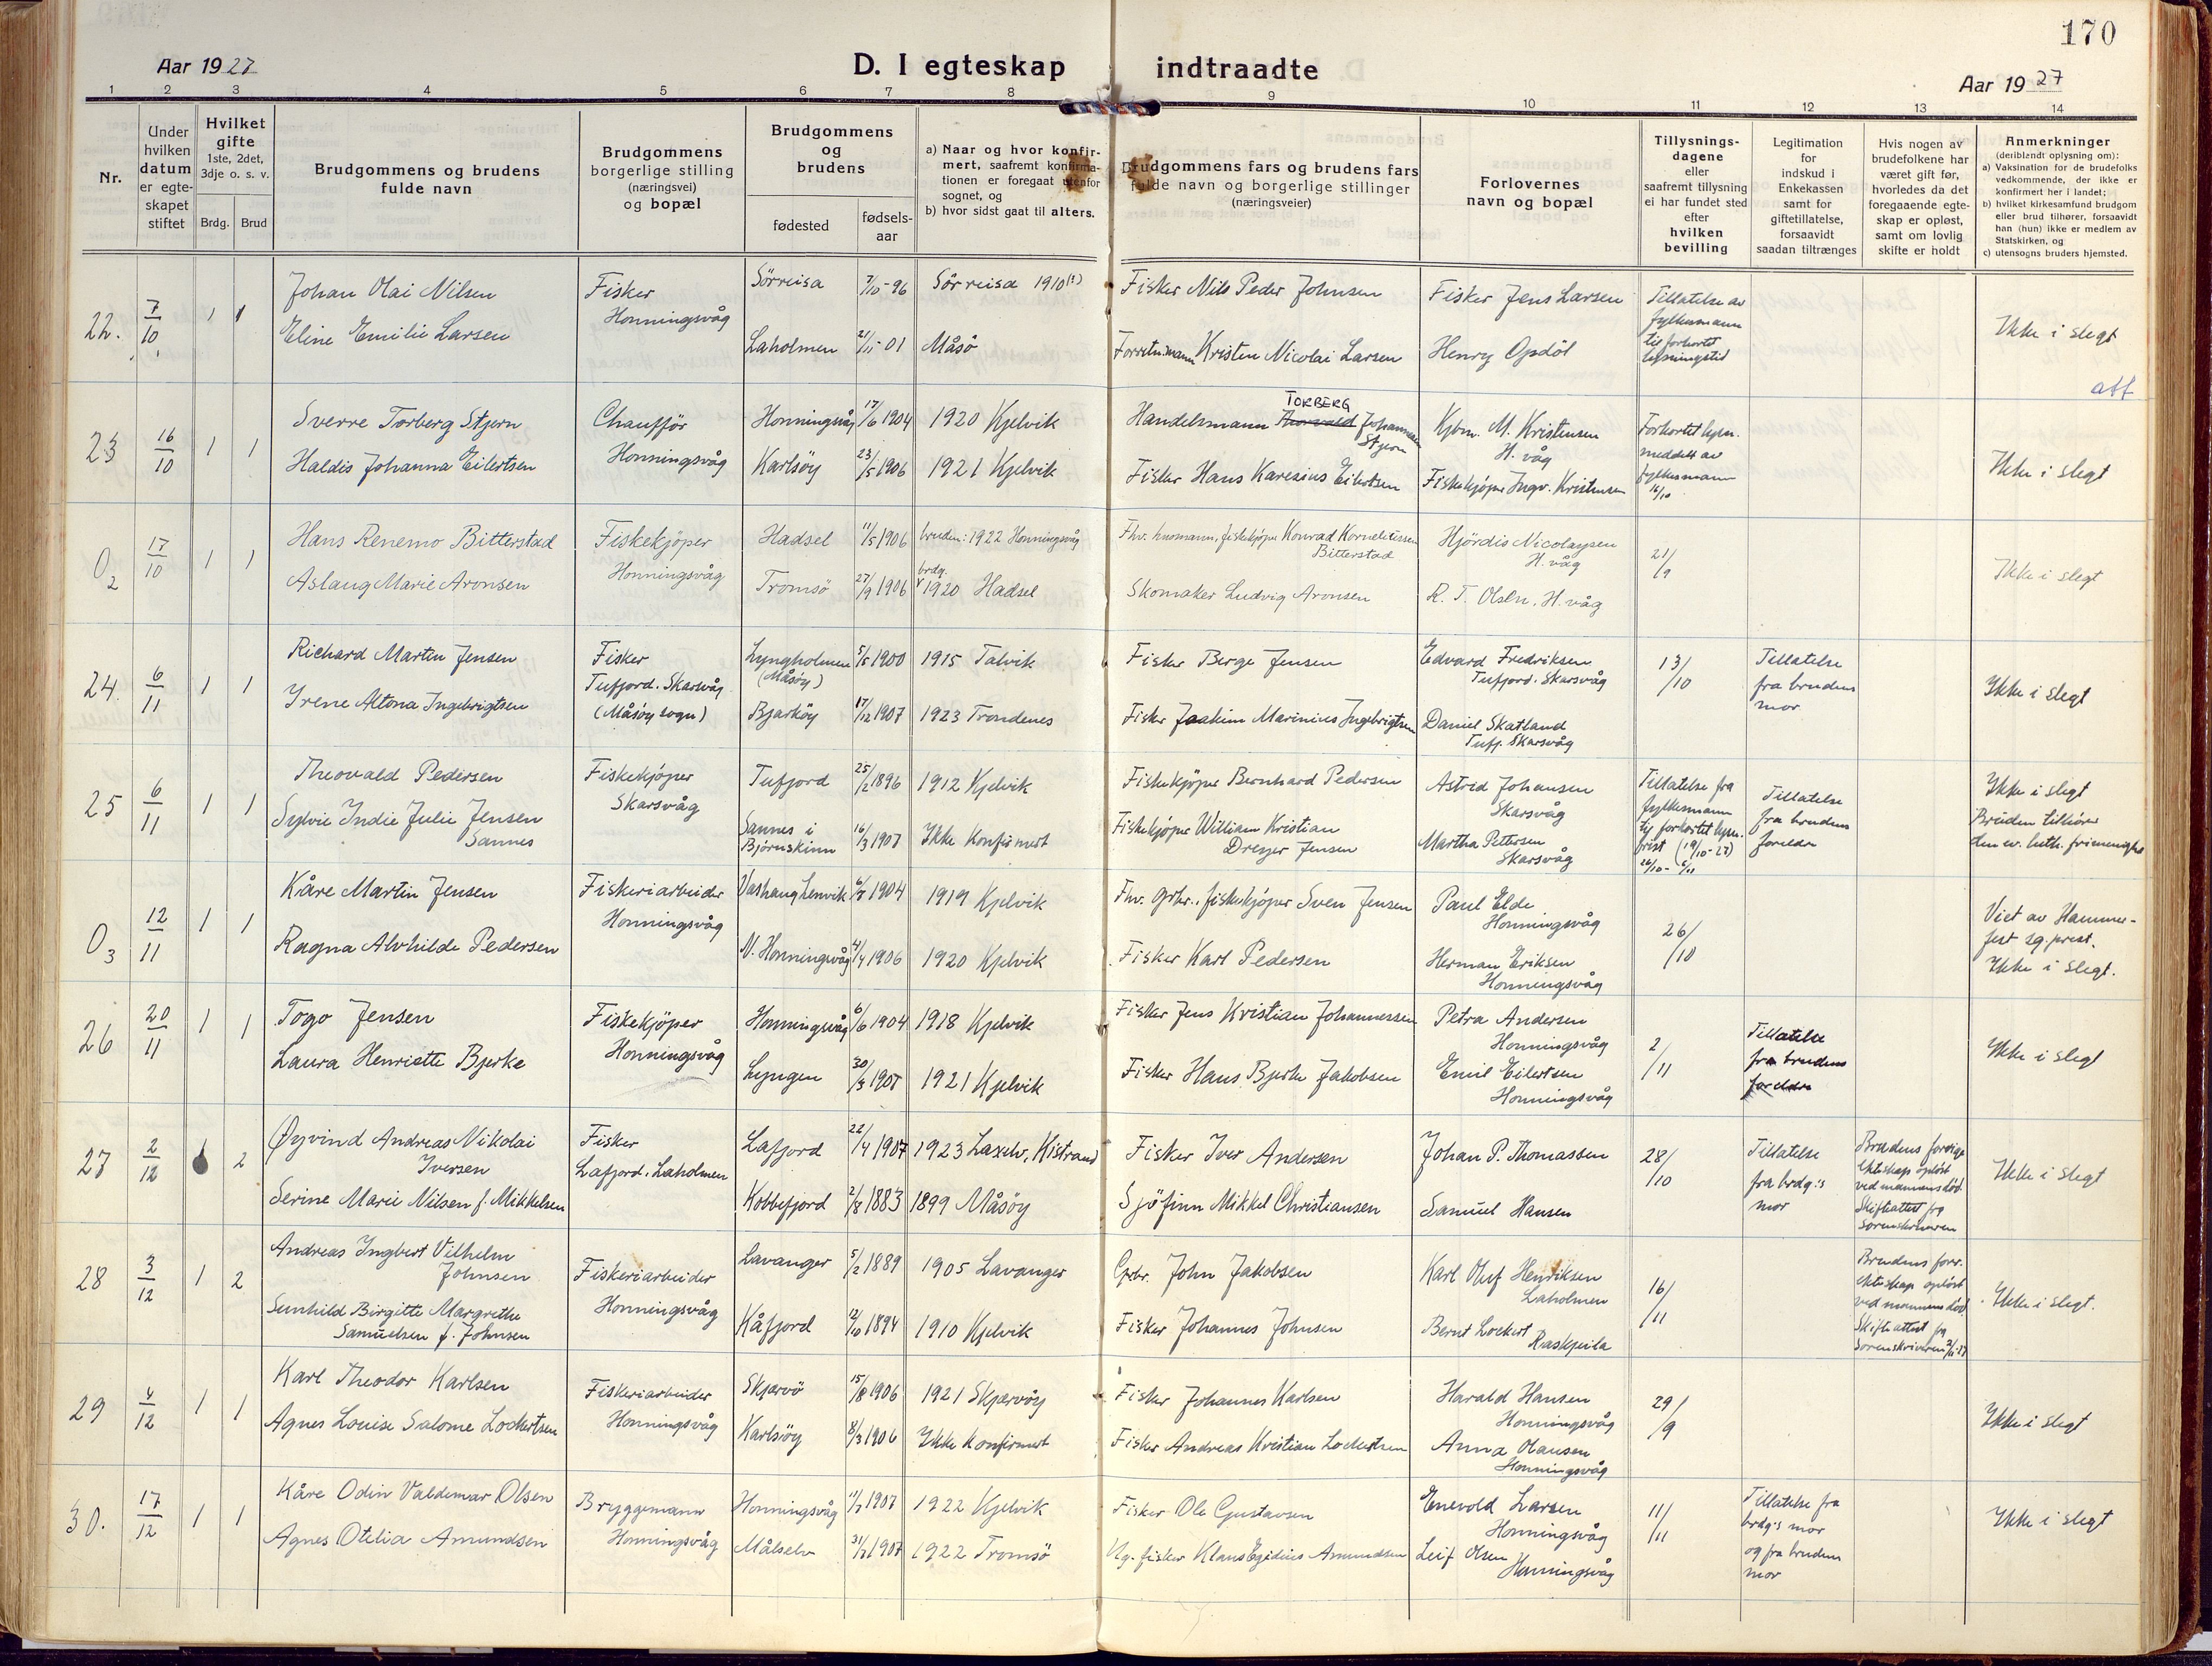 170
Aar 1927
D. I egteskap indtraadte
Aar 1927
1 2 3 4 5 6 7 8 9 10 11 12 13 14
Nr.
Under
hvilken
datum
er egte-
skapet
stiftet
Hvilket
gifte
1ste, 2det,
3dje o. s. v.
Brdg. Brud
Brudgommens og brudens
fulde navn
Brudgommens
borgerlige stilling
(næringsvei)
og bopæl
Brudgommens
og
brudens
fødested
fødsels-
aar
a) Naar og hvor konfir-
mert, saafremt konfirma-
tionen er foregaat utenfor
sognet, og
b) hvor sidst gaat til alters.
Brudgommens fars og brudens fars
fulde navn og borgerlige stillinger
(næringsveier)
Forlovernes
navn og bopæl
Tillysnings-
dagene
eller
saafremt tillysning
ei har fundet sted
efter
hvilken
bevilling
Legitimation
for
indskud i
Enkekassen
samt for
giftetillatelse,
forsaavidt
saadan tiltrænges
Hvis nogen av
brudefolkene har
været gift før,
hvorledes da det
foregaaende egte-
skap er opløst,
samt om lovlig
skifte er holdt
Anmerkninger
(deriblandt oplysning om):
a) Vaksination for de brudefolks
vedkommende, der ikke er
konfirmert her i landet;
b) hvilket kirkesamfund brudgom
eller brud tilhører, forsaavidt
han (hun) ikke er medlem av
Statskirken, og
c) utensogns bruders hjemsted.
22. 7/10 1 1
Johan Olai Nilsen
Eline Emilie Larsen
Fisker
Honningsvåg
Sörreisa 7/10-96 Sörreisa 1910(?)
Laholmen 21/11-01 Måsö
Fisker Nils Peder Johnsen
Forretn.mann Kristen Nicolai Larsen
Fisker Jens Larsen
Henry Opdöl
Tillatelse av
fylkesmann
til forkortet
lysningstid
Ikke i slegt
att
23 16/10 1 1
Sverre Torberg Stjern
Haldis Johanna Eilertsen
Chaufför
Honningsvåg
Honningsvåg 17/6 1904 1920 Kjelvik
Karlsöy 23/5 1906 1921 Kjelvik
TORBERG
Handelsmann Thorvald Johannesen
Stjern
Fisker Hans Karesius Eilertsen
Kjbm. M. Kristensen
H. våg
Fiskekjöper Ingv. Kristensen
Forkortet lysn.
meddelt av
fylkesmann
16/10
Ikke i slegt
O2 17/10 1 1
Hans Renemo Bitterstad
Aslaug Marie Aronsen
Fiskekjöper
Honningsvåg
Hadsel 11/5 1906 bruden: 1922 Honningsvåg
Tromsö 27/9 1906 brdg. 1920 Hadsel
Fhv. husmann, fiskekjöper Konrad Korneliussen
Bitterstad
Skomaker Ludvig Aronsen
Hjördis Nicolaysen
H. våg
R. T. Olsen, H. våg
21/9
Ikke i slegt
24. 6/11 1 1
Richard Martin Jensen
Irene Altona Ingebrigtsen
Fisker
Tufjord. Skarsvåg
(Måsöy sogn)
Lyngholmen 5/5 1900 1915 Talvik
(Måsöy)
Bjarköy 17/12 1907 1923 Trondenes
Fisker Berge Jensen
Fisker Joakim Marinius Ingebrigtsen
Edvard Fredriksen
Tufjord. Skarsvåg
Daniel Skatland
Tufj. Skarsvåg
13/10
Tillatelse
fra brudens
mor
Ikke i slegt
25 6/11 1 1
Theovald Pedersen
Sylvie Indie Julie Jensen
Sannes
Fiskekjöper
Skarsvåg
Tufjord 25/2 1896 1912 Kjelvik
Sannes i
Bjørnskinn 16/3 1907 Ikke konfirmert
Fiskekjöper Bernhard Pedersen
Fiskekjöper William Kristian
Dreyer Jensen
Astrid Johansen
Skarsvåg
Martha Pettersen
Skarsvåg
Tillatelse fra
fylkesmann
til forkortet lysn.
frist (19/10-27)
26/10 - 6/11
Tillatelse
fra brudens
foreldre
Ikke i slegt
Bruden tilhører
den ev. luth. frimenighet
O3 12/11 1 1
Kåre Martin Jensen
Ragna Alvhilde Pedersen
Fiskeriarbeider
Honningsvåg
Vashaug Lenvik 6/7 1904 1919 Kjelvik
N. Honningsvåg 4/4 1906 1920 Kjelvik
Fhv. grbr., fiskekjöper Sven Jensen
Fisker Karl Pedersen
Paul Elde
Honningsvåg
Herman Eriksen
Honningsvåg
26/10
Viet av Hammer-
fest sg.prest.
Ikke i slegt.
26 20/11 1 1
Togo Jensen
Laura Henriette Bjerke
Fiskekjöper
Honningsvåg
Honningsvåg 6/6 1904 1918 Kjelvik
Lyngen 30/3 1907 1921 Kjelvik
Fisker Jens Kristian Johannessen
Fisker Hans Bjerke Jakobsen
Petra Andersen
Honningsvåg
Emil Eilertsen
Honningsvåg
2/11
Tillatelse
fra brudens
foreldre
Ikke i slegt
27 2/12 2
Øyvind Andreas Nikolai
Iversen
Serine Marie Nilsen f. Mikkelsen
Fisker
Lafjord, Laholmen
Lafjord 22/4 1907 1923 Laxelv, Kistrand
Kobbefjord 2/8 1883 1899 Måsöy
Fisker Iver Andersen
Sjöfinn Mikkel Christiansen
Johan P. Thomassen
Samuel Hansen
28/10
Tillatelse
fra brdg.'s
mor
Brudens forrige
ekteskap opløst
ved mannens död.
Skifteattest fra
sorenskriveren
Ikke i slegt
28 3/12 1 2
Andreas Ingbert Vilhelm
Johnsen
Sunhild Birgitte Margrethe
Samuelsen f. Johnsen
Fiskeriarbeider
Honningsvåg
Lavanger 5/2 1889 1905 Lavanger
Kåfjord 12/10 1894 1910 Kjelvik
Grbr. John Jakobsen
Fisker Johannes Johnsen
Karl Oluf Henriksen
Laholmen
Bernt Lockert
Raskjeila
16/11
Brudens forr.
ekteskap opløst
ved mannens död
Skifteattest fra
Sorenskriveren 2/11-27
Ikke i slegt.
29 4/12 1 1
Karl Theodor Karlsen
Agnes Louise Salome Lockertsen
Fiskeriarbeider
Honningsvåg
Skjervö 15/8 1906 1921 Skjervöy
Karlsöy 8/3 1906 Ikke konfirmert
Fisker Johannes Karlsen
Fisker Andreas Kristian Lockertsen
Harald Hansen
Honningsvåg
Anna Olausen
Honningsvåg
29/9
Ikke i slegt
30. 17/12 1 1
Kåre Odin Valdemar Olsen
Agnes Otelia Amundsen
Bryggemann
Honningsvåg
Honningsvåg 11/7 1907 1922 Kjelvik
Målselv 31/7 1907 1922 Tromsö
Fisker Ole Gustavsen
Ug. fisker Klaus Egidius Amundsen
Enevold Larsen
Honningsvåg
Leif Olsen
Honningsvåg
11/11
Tillatelse fra
brdg's mor
og fra brudens
mor
Ikke i slegt